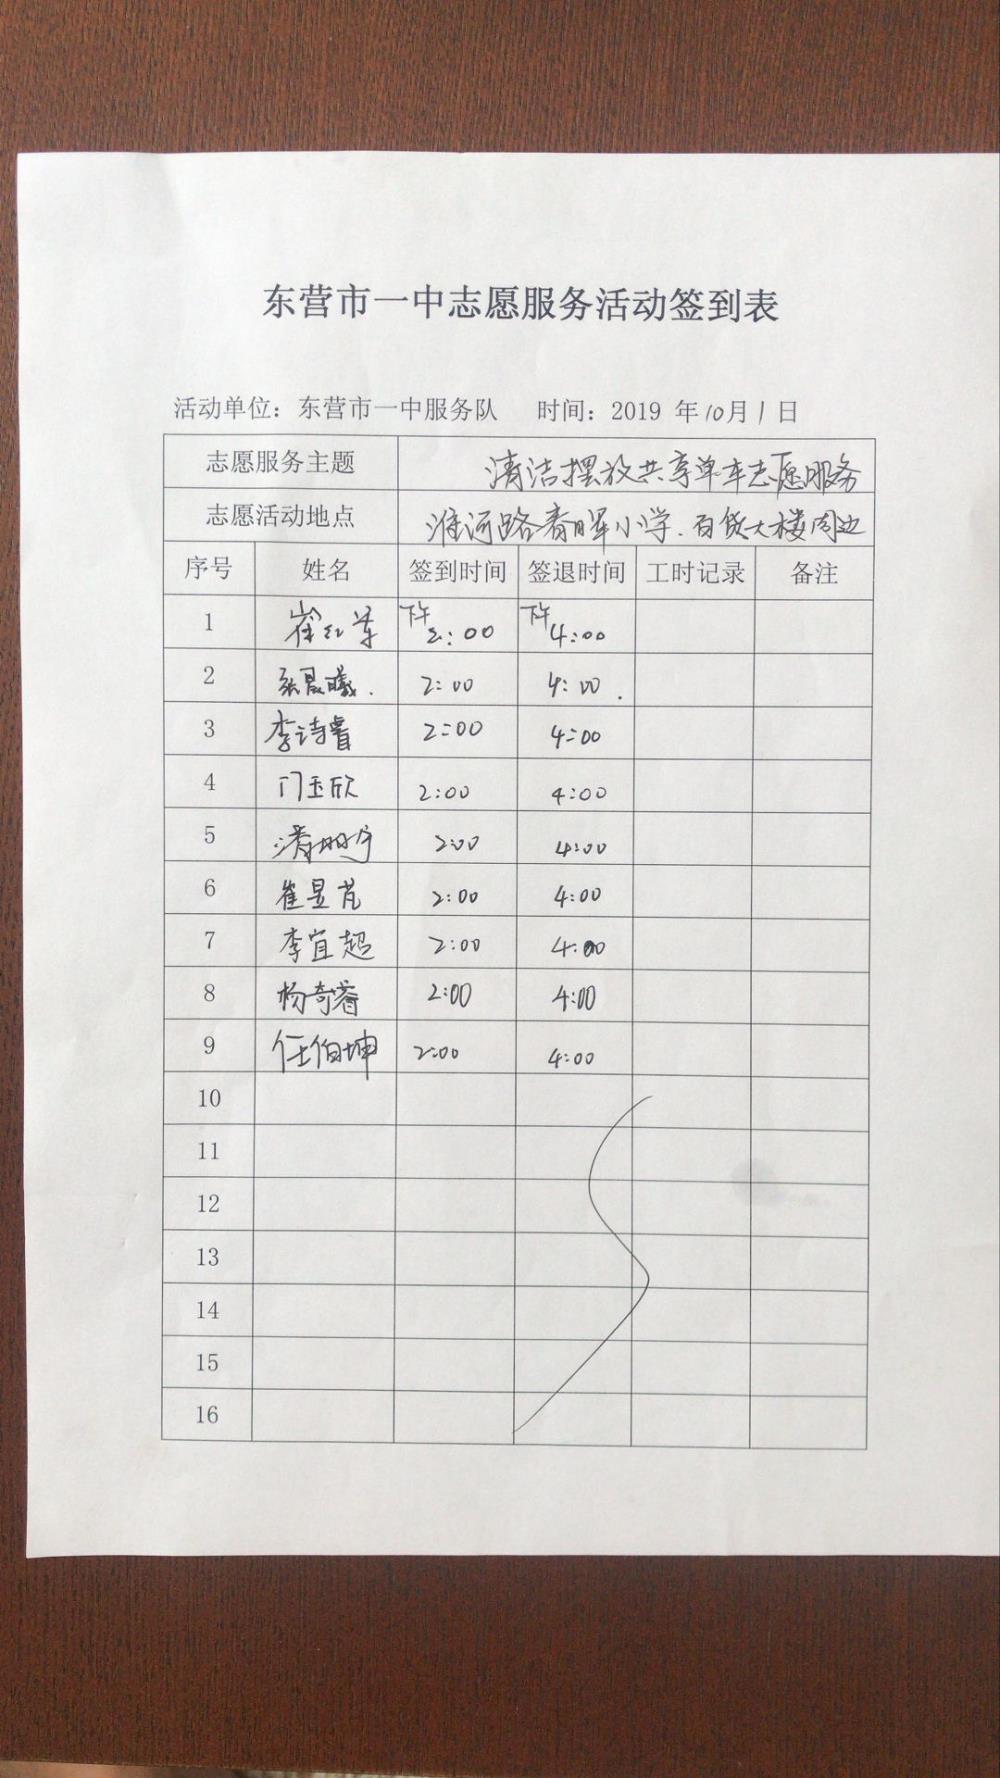 东营市一中志愿服务活动签到表
活动单位：东营市一中服务队 时间：2019 年10月1日
志愿服务主题 清洁摆放共享单车志愿服务
志愿活动地点 淮河路春晖小学.百货大楼周边
序号 姓名 签到时间 签退时间 工时记录 备注
1 崔红军 下午2:00 下午4:00
2 张晨曦. 2:00 4:00.
3 李诗睿 2:00 4:00
4 门玉欣 2:00 4:00
5 2:00 4:00
6 崔昱芃 2:00 4:00
7 李宜超 2:00 4:00
8 杨奇睿 2:00 4:00
9 任伯坤 2:00 4:00
10
11
12
13
14
15
16